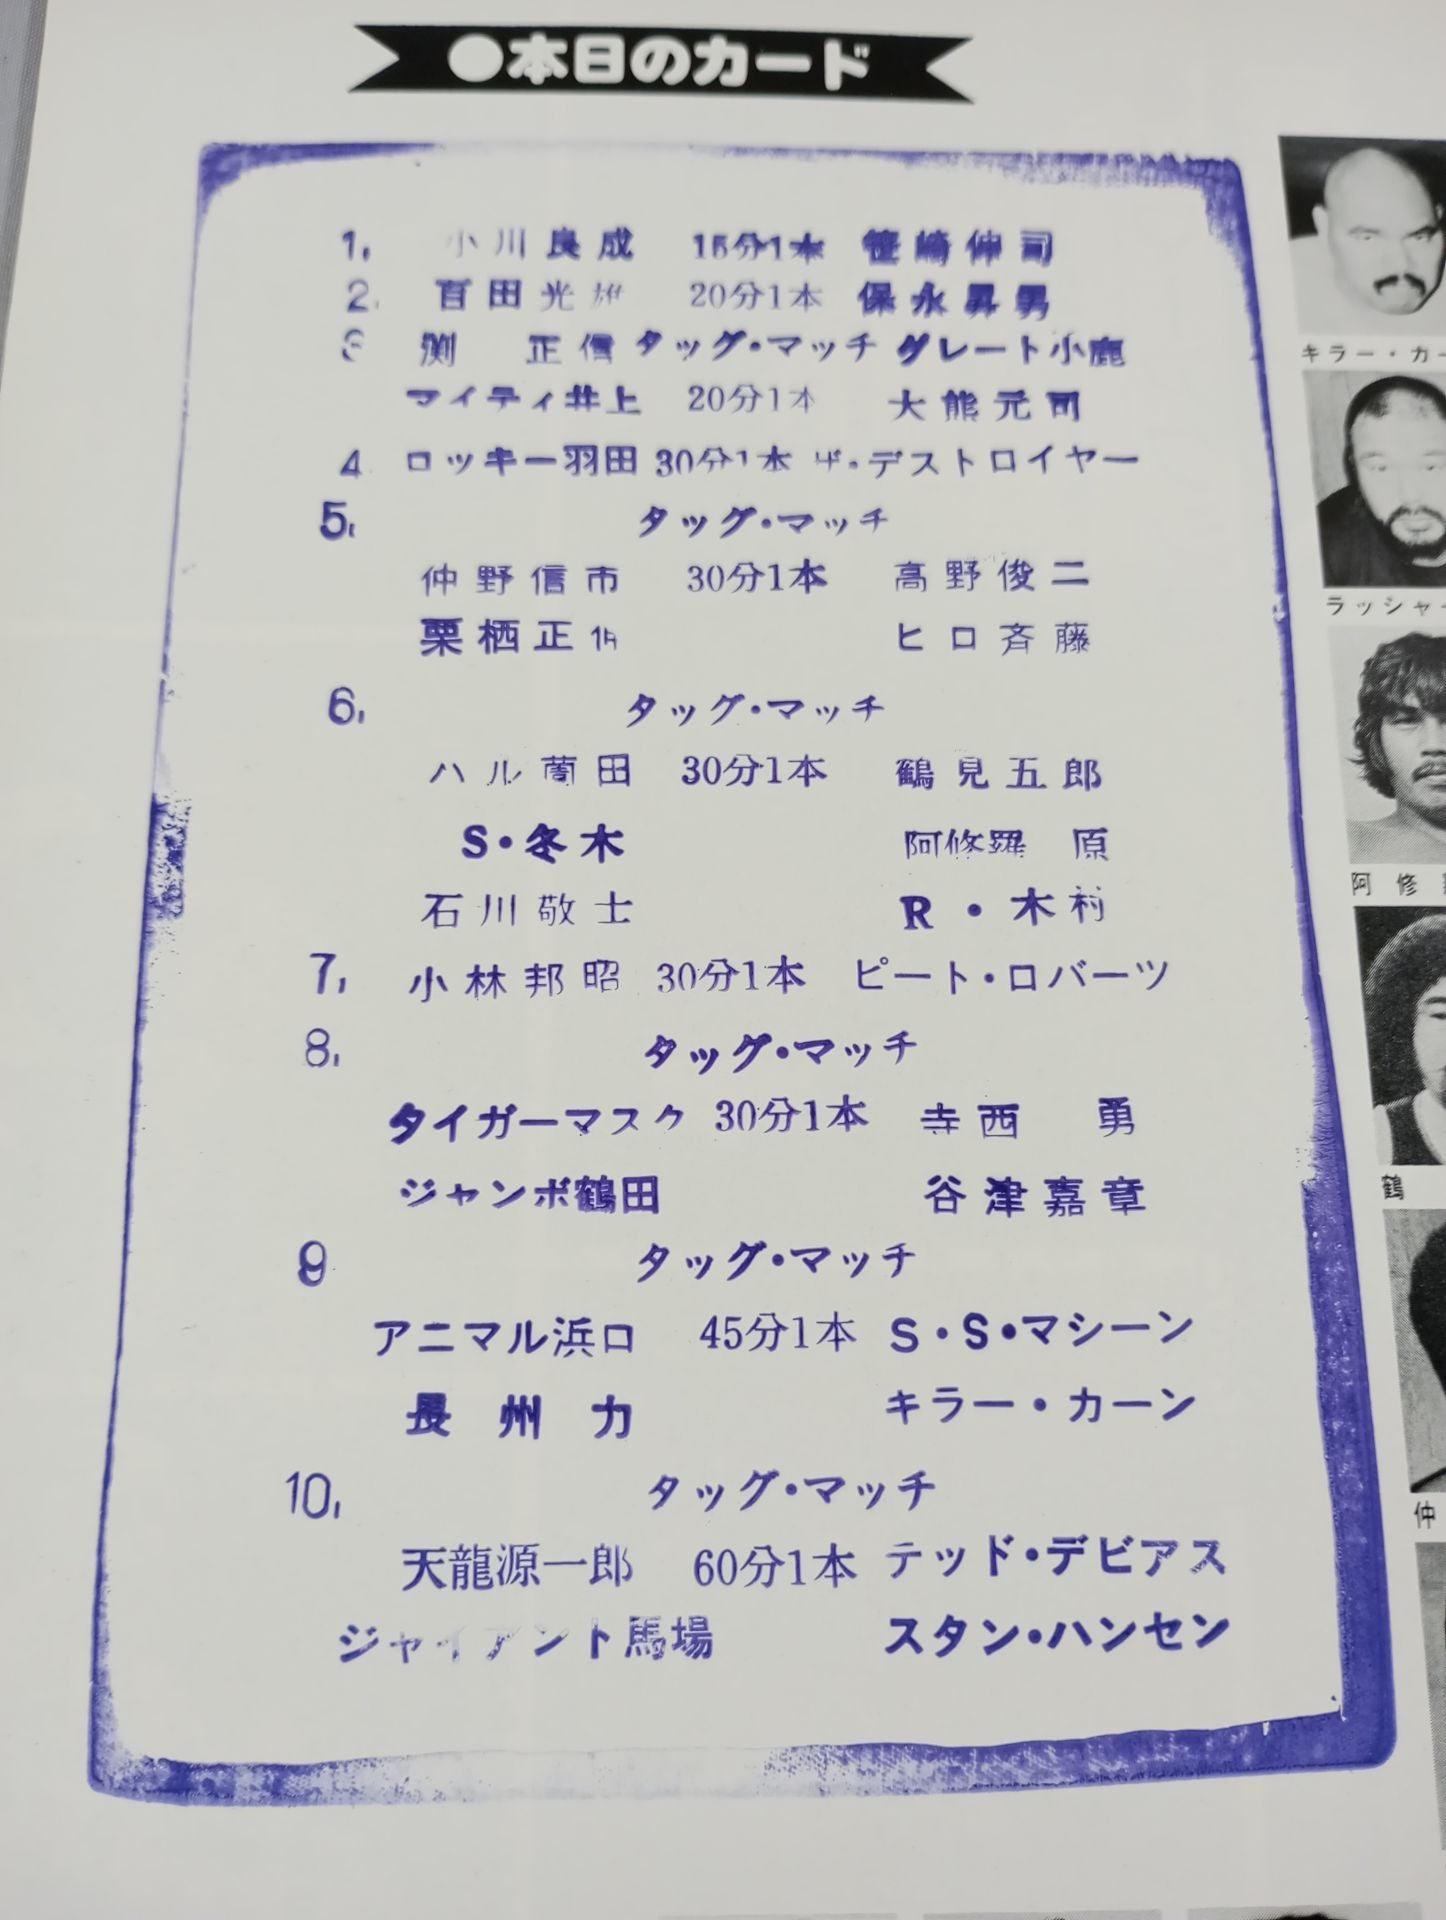 ●本日のカード
1, 小川良成 15分1本 笹崎伸司
2, 百田光雄 20分1本 保永昇男
3 渕 正信 タッグ・マッチ グレート小鹿
マイティ井上 20分1本 大熊元司
4 ロッキー羽田 30分1本 ザ・デストロイヤー
5, タッグ・マッチ
仲野信市 30分1本 高野俊二
栗栖正伸 ヒロ斉藤
6, タッグ・マッチ
ハル薗田 30分1本 鶴見五郎
S・冬木 阿修羅 原
石川敬士 R・木村
7, 小林邦昭 30分1本 ピート・ロバーツ
8, タッグ・マッチ
タイガーマスク 30分1本 寺西 勇
ジャンボ鶴田 谷津嘉章
9 タッグ・マッチ
アニマル浜口 45分1本 S・S・マシーン
長州力 キラー・カーン
10, タッグ・マッチ
天龍源一郎 60分1本 テッド・デビアス
ジャイアント馬場 スタン・ハンセン
キラー・カー
ラッシャー
阿修
鶴
仲